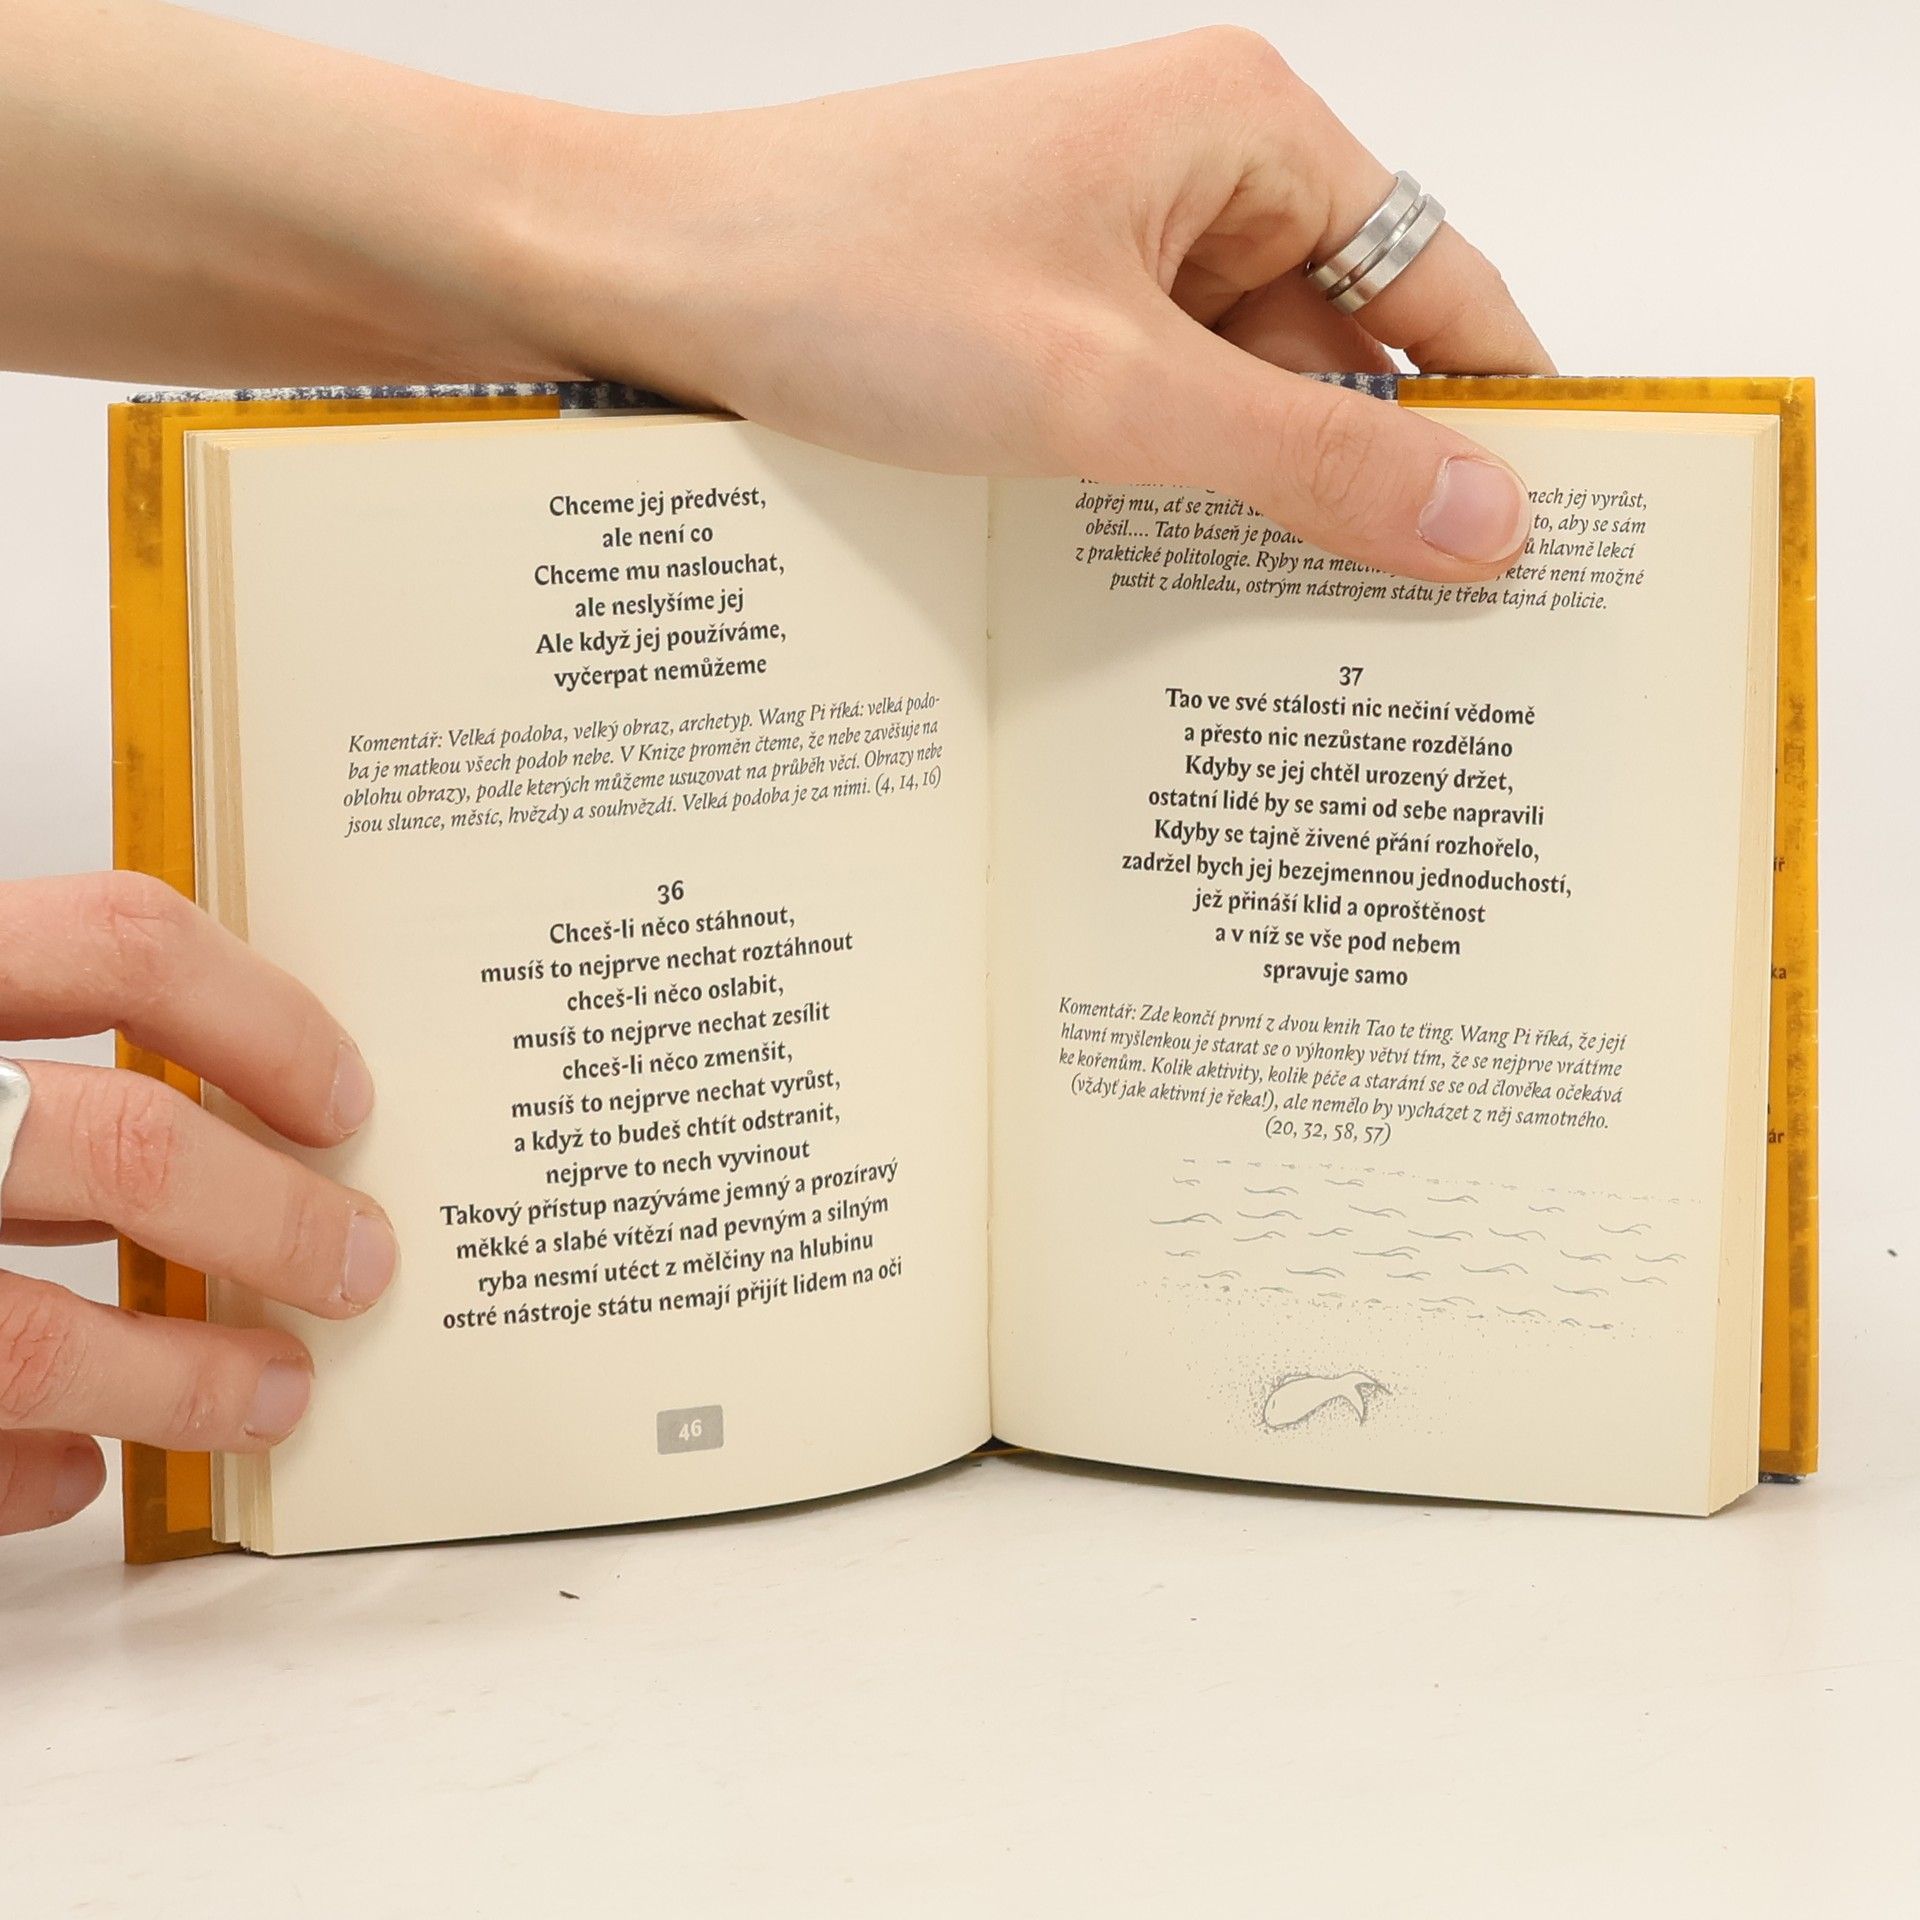 Chceme jej předvést,
ale není co
Chceme mu naslouchat,
ale neslyšíme jej
Ale když jej používáme,
vyčerpat nemůžeme
Komentář: Velká podoba, velký obraz, archetyp. Wang Pi říká: velká podo-
ba je matkou všech podob nebe. V Knize proměn čteme, že nebe zavěšuje na
oblohu obrazy, podle kterých můžeme usuzovat na průběh věcí. Obrazy nebe
jsou slunce, měsíc, hvězdy a souhvězdí. Velká podoba je za nimi. (4, 14, 16)
36
Chceš-li něco stáhnout,
musíš to nejprve nechat roztáhnout
chceš-li něco oslabit,
musíš to nejprve nechat zesílit
chceš-li něco zmenšit,
musíš to nejprve nechat vyrůst,
a když to budeš chtít odstranit,
nejprve to nech vyvinout
Takový přístup nazýváme jemný a prozíravý
měkké a slabé vítězí nad pevným a silným
ryba nesmí utéct z mělčiny na hlubinu
ostré nástroje státu nemají přijít lidem na oči
46
jej vyrůst,
dopřej mu, ať se zničí to, aby se sám
oběsil.... Tato báseň je hlavně lekcí
z praktické politologie. Ryby na které není možné
pustit z dohledu, ostrým nástrojem státu je třeba tajná policie.
37
Tao ve své stálosti nic nečiní vědomě
a přesto nic nezůstane rozděláno
Kdyby se jej chtěl urozený držet,
ostatní lidé by se sami od sebe napravili
Kdyby se tajně živené přání rozhořelo,
zadržel bych jej bezejmennou jednoduchostí,
jež přináší klid a oproštěnost
a v níž se vše pod nebem
spravuje samo
Komentář: Zde končí první z dvou knih Tao te ťing. Wang Pi říká, že její
hlavní myšlenkou je starat se o výhonky větví tím, že se nejprve vrátíme
ke kořenům. Kolik aktivity, kolik péče a starání se se od člověka očekává
(vždyť jak aktivní je řeka!), ale nemělo by vycházet z něj samotného.
(20, 32, 58, 57)